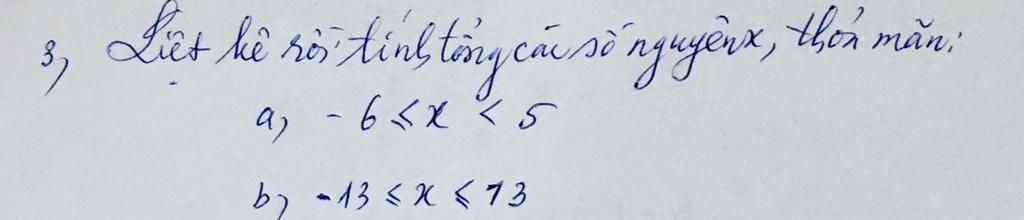 3, Liệt kê rồi tính tổng các số nguyên x, thỏa mãn:
a, - 6 ⩽ x < 5
b, - 13 ⩽ x ⩽ 13